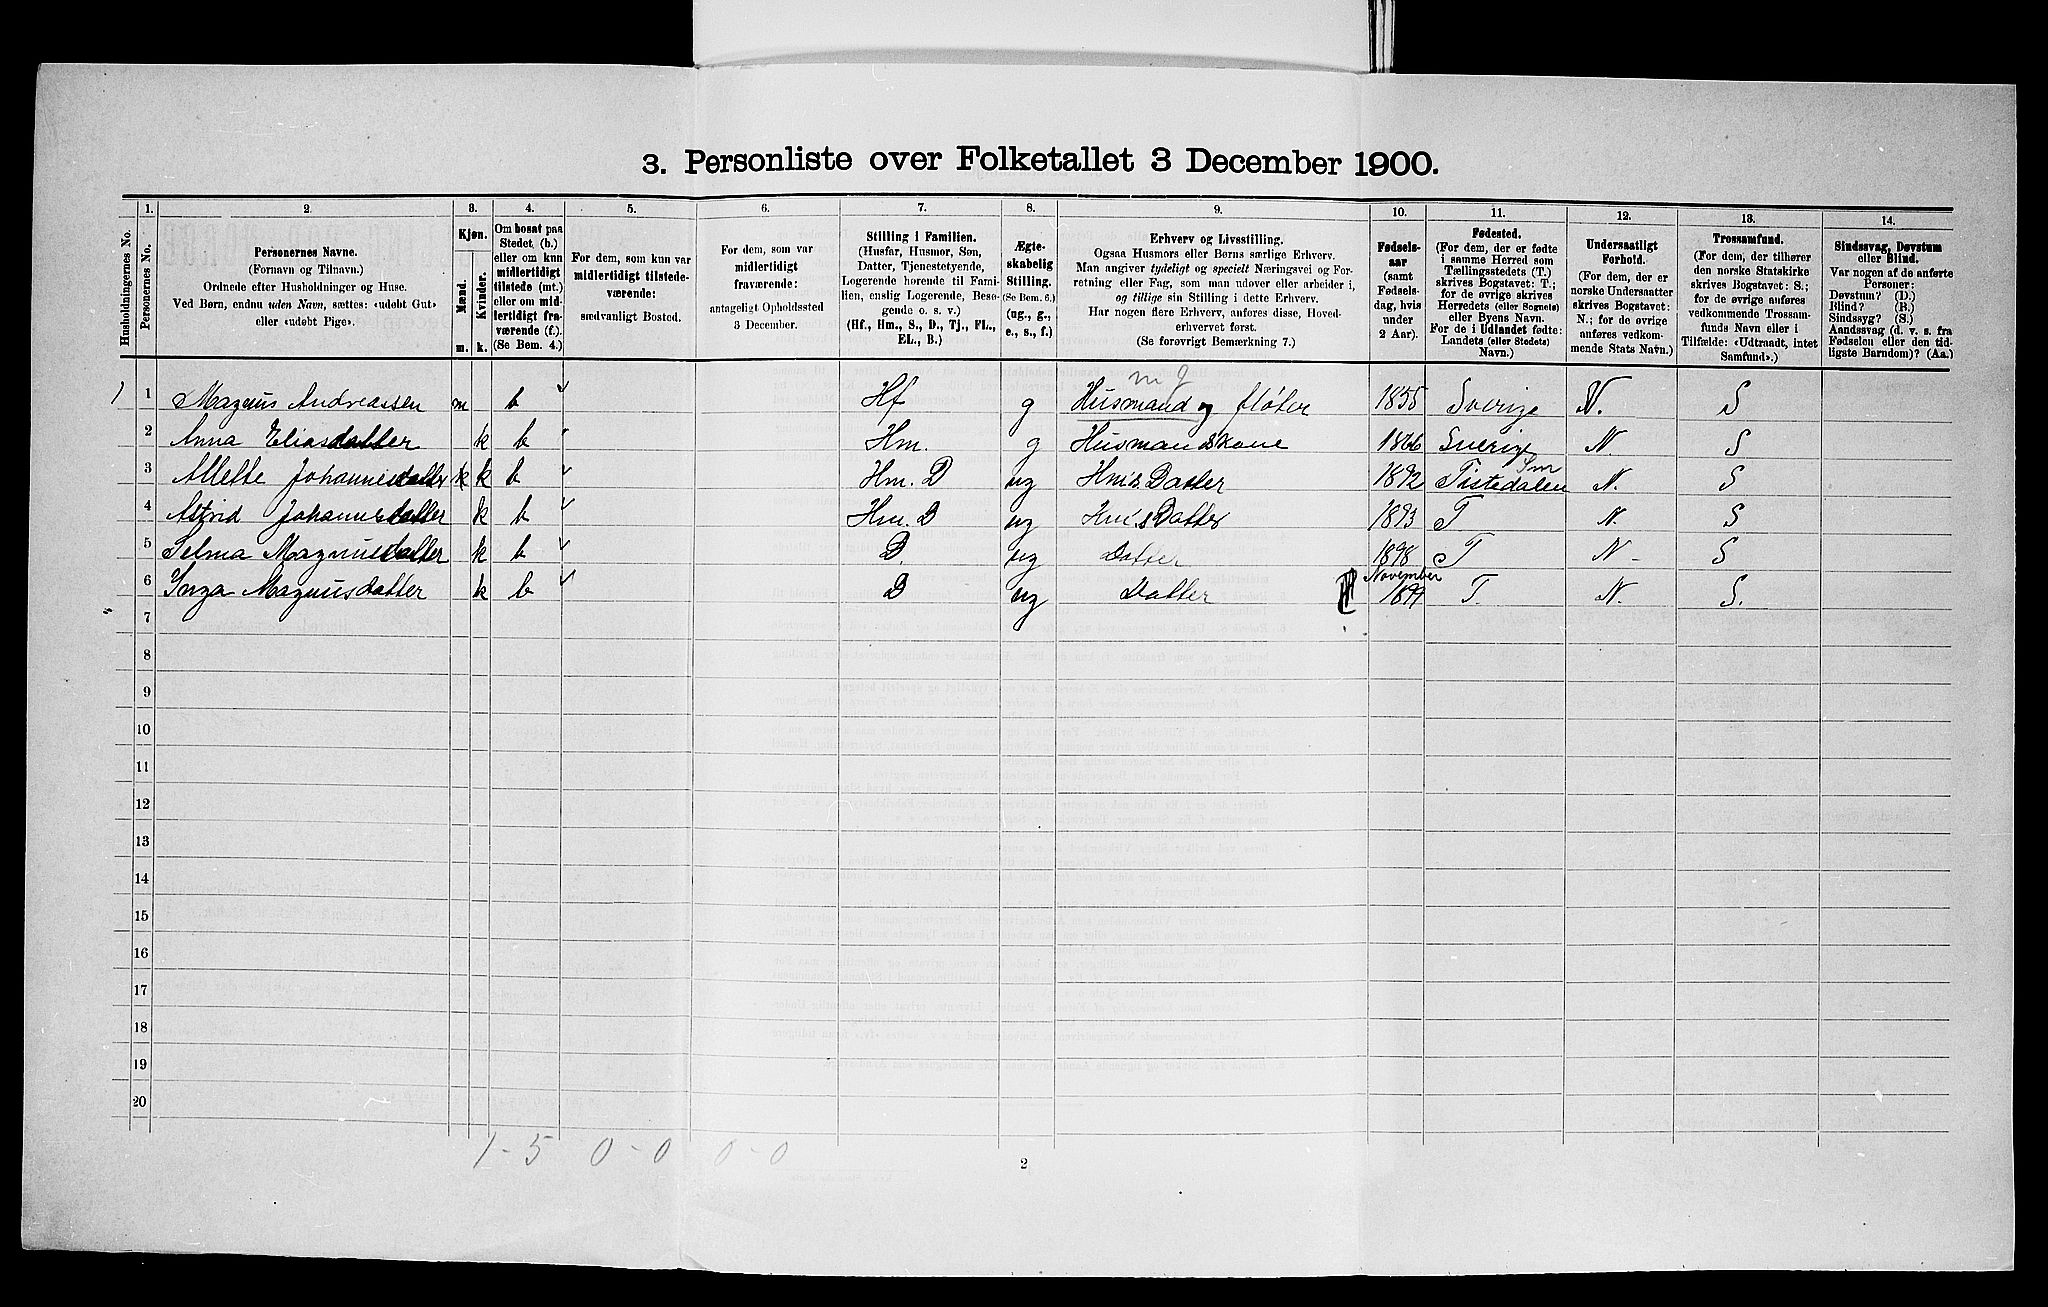 3. Personliste over Folketallet 3 December 1900.
Husholdningernes No.
1.
Personernes No.
2.
Personernes Navne.
(Fornavn og Tilnavn.)
Ordnede efter Husholdninger og Huse.
Ved Børn, endnu uden Navn, sættes: «udøbt Gut»
eller «udøbt Pige».
3.
Kjøn.
Mænd.
Kvinder.
m.
k.
4.
Om bosat paa
Stedet, (b.)
eller om kun
midlertidigt
tilstede (mt.)
eller om mid-
lertidigt fra-
værende (f.).
(Se Bem. 4.)
5.
For dem, som kun var
midlertidigt tilstede-
værende:
sædvanligt Bosted.
6.
For dem, som var
midlertidigt
fraværende:
antageligt Opholdssted
3 December.
7.
Stilling i Familien.
(Husfar, Husmor, Søn,
Datter, Tjenestetyende,
Logerende hørende til Fami-
lien, enslig Logerende, Besø-
gende o. s. v.)
(Hf., Hm., S., D., Tj., FL.,
EL., B.)
8.
Ægte-
skabelig
Stilling.
(Se Bem. 6.)
(ug., g.,
e., s., f.)
9.
Erhverv og Livsstilling.
Ogsaa Husmors eller Børns særlige Erhverv.
Man angiver tydeligt og specielt Næringsvei og For-
retning eller Fag, som man udøver eller arbeider i,
og tillige sin Stilling i dette Erhverv.
Har nogen flere Erhverv, anføres disse, Hoved-
erhvervet først.
(Se forøvrigt Bemærkning 7.)
10.
Fødsels-
aar
(samt
Fødsels-
dag, hvis
under
2 Aar).
11.
Fødested.
(For dem, der er fødte
i samme Herred som
Tællingsstedets (T.)
skrives Bogstavet: T.;
for de øvrige skrives
Herredets (eller Sognets)
eller Byens Navn.
For de i Udlandet fødte:
Landets (eller Stedets)
Navn.)
12.
Undersaatligt
Forhold.
(For dem, der er
norske Undersaatter
skrives Bogstavet:
N.; for de øvrige
anføres vedkom-
mende Stats Navn.)
13.
Trossamfund.
(For dem, der tilhører
den norske Statskirke
skrives Bogstavet: S.;
for de øvrige anføres
vedkommende Trossam-
funds Navn eller i
Tilfælde: «Udtraadt, intet
Samfund».)
14.
Sindssvag, Døvstum
eller Blind.
Var nogen af de anførte
Personer:
Døvstum? (D.)
Blind? (B.)
Sindssyg? (S.)
Aandssvag (d. v. s. fra
Fødselen eller den tid-
ligste Barndom)? (Aa.)
1 1 Magnus Andreassen m b Hf g Husmand og fløter 1855 Sverige N. S
2 Anna Eliasdatter k b Hm. g Husmandskone 1866 Sverige N. S
3 Allette Johannesdatter k b Hm. D ug Hm's Datter 1892 Tistedalen N. S
4 Astrid Johannesdatter k b Hm. D ug Hm's Datter 1893 T N. S
5 Selma Magnusdatter k b D. ug Datter 1898 T N - S
6 Inga Magnusdatter k b D ug Datter November 1899 T. N. S.
7
8
9
10
11
12
13
14
15
16
17
18
19
20
1 - 5 0 - 0 0 - 0
2